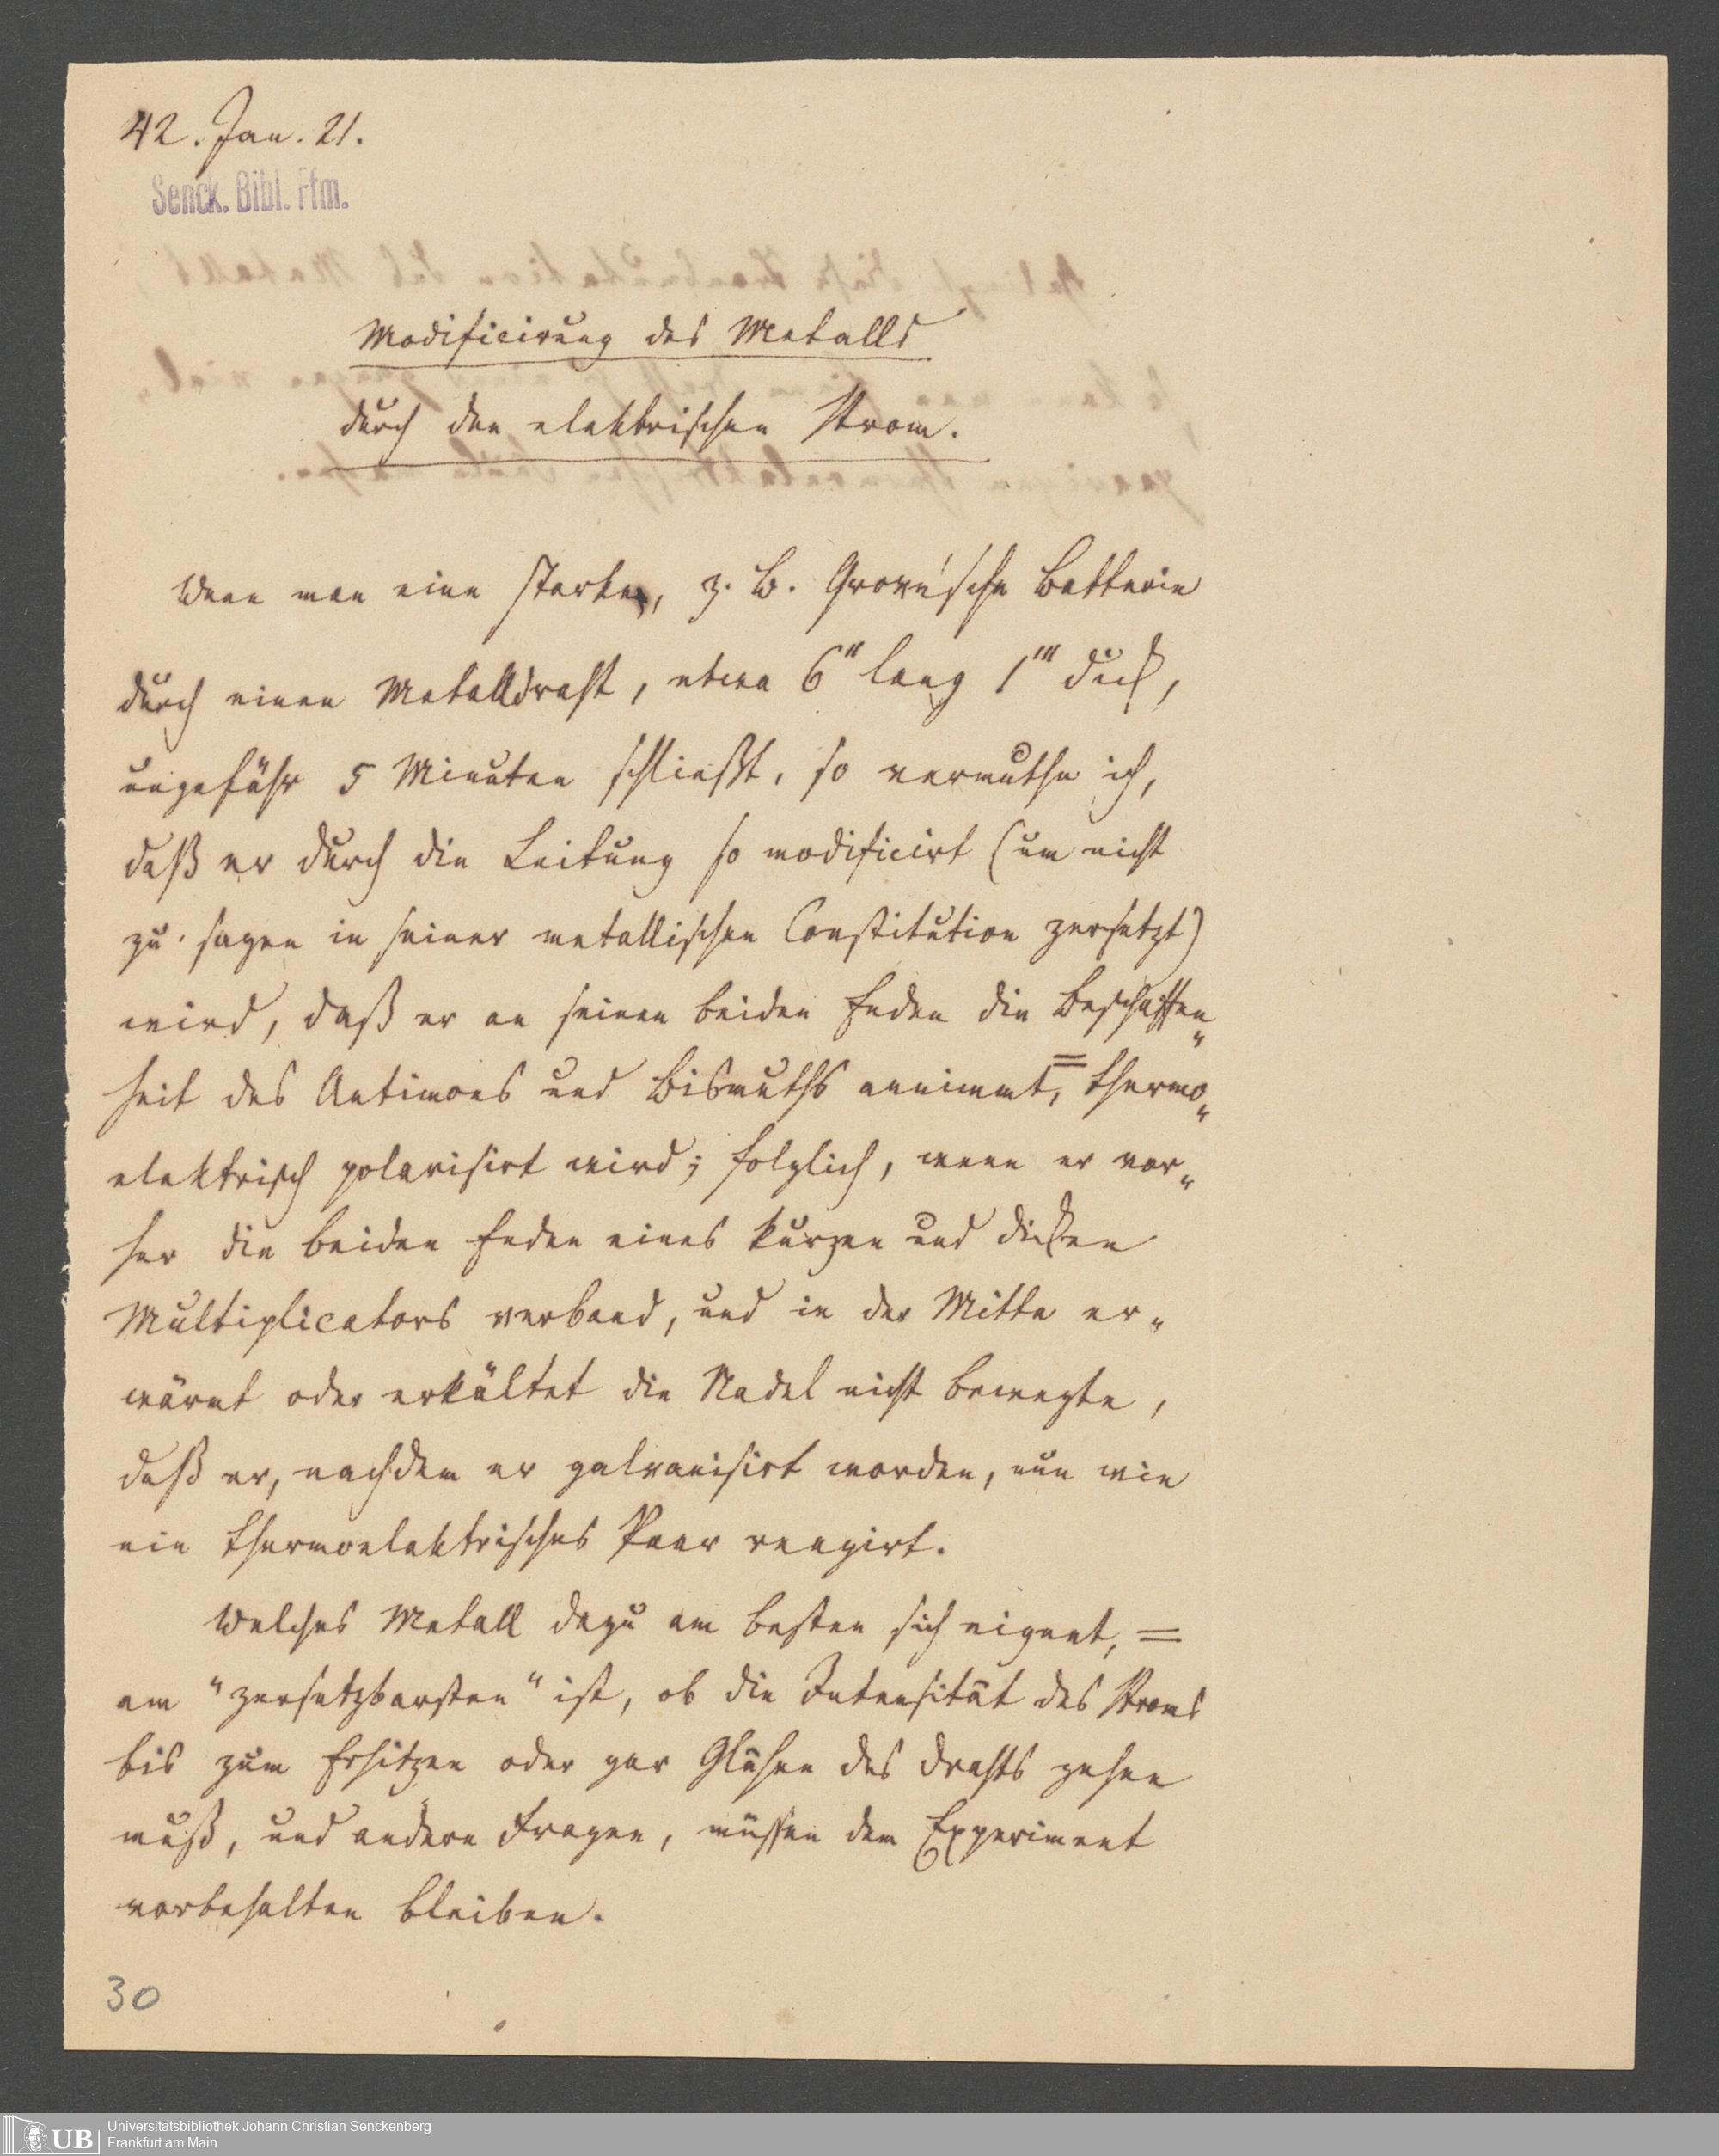 42. Jan. 21.
Senck. Bibl. Ffm.
Modificirung des Metalls
durch den elektrischen Strom.
Wenn man eine starke, z. B. Grove'sche Batterie
durch einen Metalldraht, etwa 6" lang 1''' dick,
ungefähr 5 Minuten schließt, so vermuthe ich,
daß er durch die Leitung so modificirt (um nicht
zu sagen in seiner metallischen Constitution zersetzt)
wird, daß er an seinen beiden Enden die Beschaffen„
heit des Antimons und Bismuths annimmt, = thermo„
elektrisch polarisirt wird; folglich, wenn er vor„
her die beiden Enden eines kurzen und dicken
Multiplicators verband, und in der Mitte er„
wärmt oder erkältet die Nadel nicht bewegte,
daß er, nachdem er galvanisirt worden, nun wie
ein thermoelektrisches Paar reagirt.
Welches Metall dazu am besten sich eignet, =
am "zersetzbarsten" ist, ob die Intensität des Stroms
bis zum Erhitzen oder gar Glühen des Drahts gehen
muß, und andere Fragen, müssen dem Experiment
vorbehalten bleiben.
30
UB
Universitätsbibliothek Johann Christian Senckenberg
Frankfurt am Main